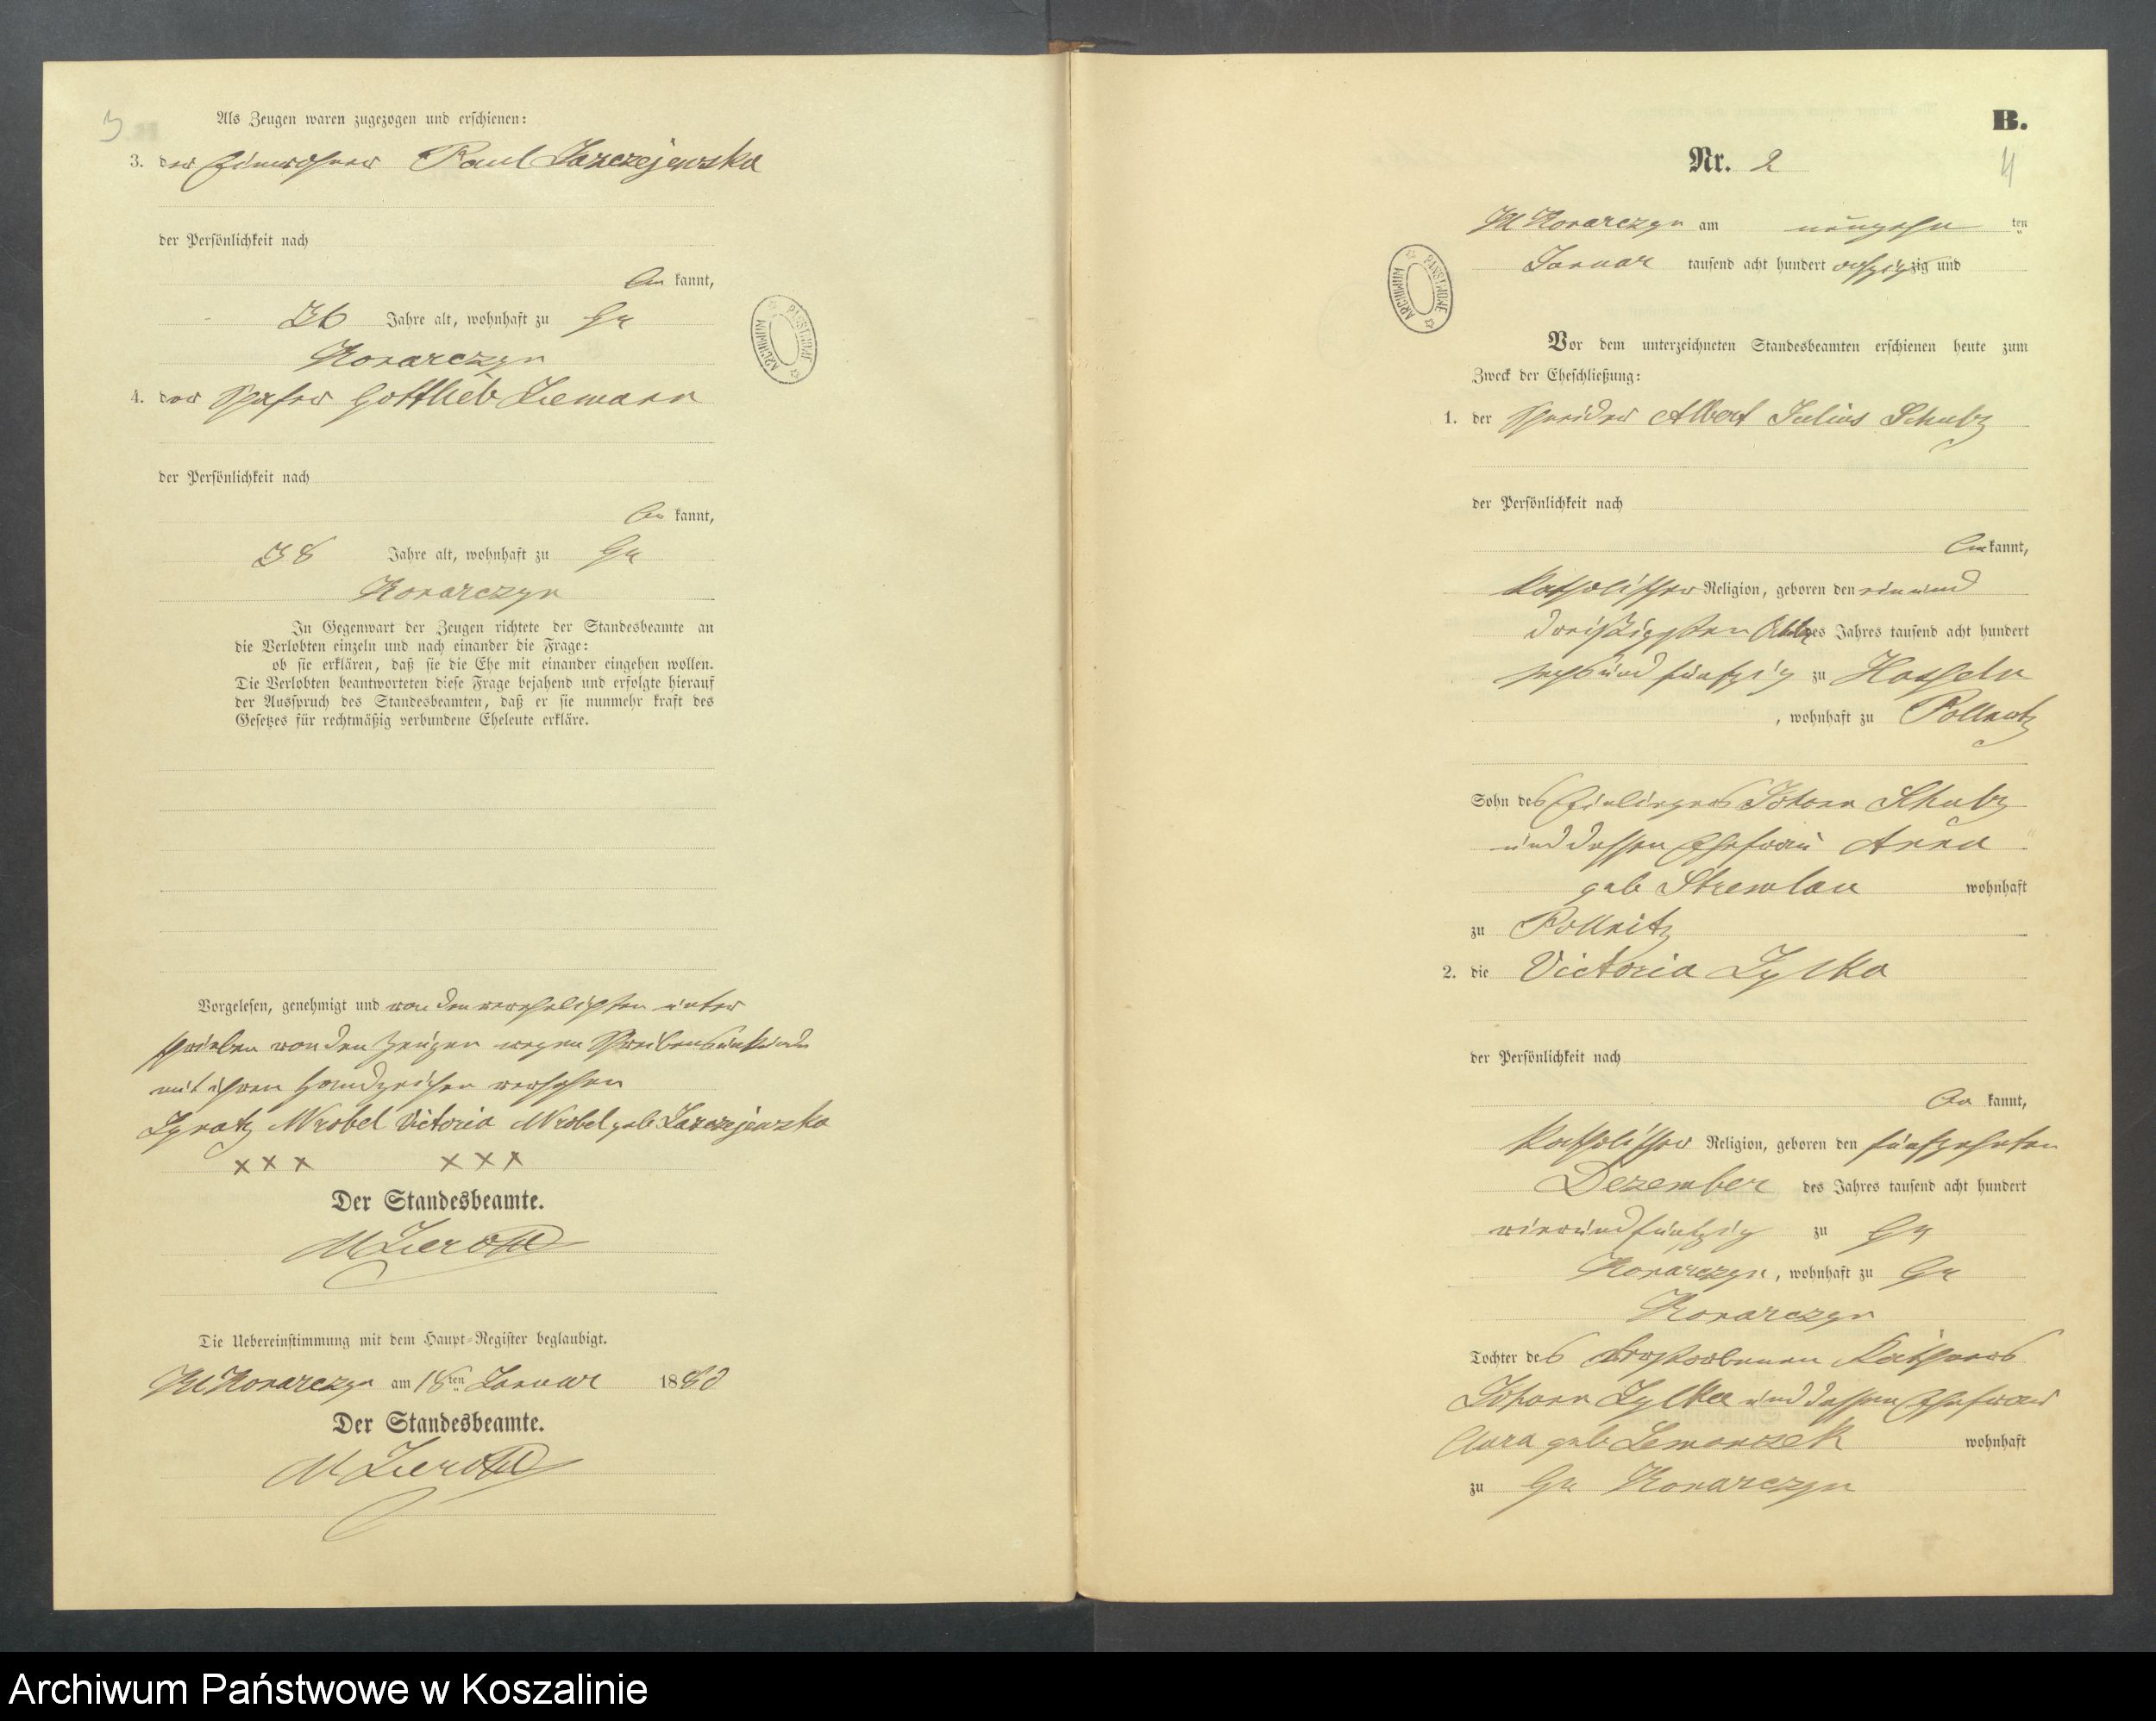 3
Als Zeugen waren zugezogen und erschienen:
3. der Einwohner Paul Jarczejewska
der Persönlichkeit nach
be kannt,
36 Jahre alt, wohnhaft zu Gr
Konarczyn
4. der Schäfer Gottlieb Liemann
der Persönlichkeit nach
be kannt,
38 Jahre alt, wohnhaft zu Gr
Konarczyn
In Gegenwart der Zeugen richtete der Standesbeamte an
die Verlobten einzeln und nach einander die Frage:
ob sie erklären, daß sie die Ehe mit einander eingehen wollen.
Die Verlobten beantworteten diese Frage bejahend und erfolgte hierauf
der Ausspruch des Standesbeamten, daß er sie nunmehr kraft des
Gesetzes für rechtmäßig verbundene Eheleute erkläre.
Vorgelesen, genehmigt und von den verehelichten unter
schrieben von den Zeugen wegen Schreibensunkunde
mit ihren Handzeichen versehen
Ignatz Wrobel Victoria Wrobel geb Jarczejewska
x x x x x x
Der Standesbeamte.
Die Uebereinstimmung mit dem Haupt-Register beglaubigt.
Kl Konarczyn am 18ten Januar 1880
Der Standesbeamte.
ARCHIWUM PAŃSTWOWE
B.
4
Nr. 2
Kl Konarczyn am neunzehn ten
Januar tausend acht hundert achtzig zig und
ARCHIWUM PAŃSTWOWE
Vor dem unterzeichneten Standesbeamten erschienen heute zum
Zweck der Eheschließung:
1. der Schneider Albert Julius Schulz
der Persönlichkeit nach
be kannt,
katholischer Religion, geboren den ein und
dreißigsten des Jahres tausend acht hundert
sechsundfünfzig zu
, wohnhaft zu Pollnitz
Sohn des Einliegers Johann Schulz
und dessen Ehefrau Anna
geb Stremlau wohnhaft
zu Pollnitz
2. die Victoria Zylka
der Persönlichkeit nach
be kannt,
katholischer Religion, geboren den fünfzehnten
Dezember des Jahres tausend acht hundert
vierundfünfzig zu Gr
Konarczyn, wohnhaft zu Gr
Konarczyn
Tochter des verstorbenen Käthners
Johann Zylka und dessen Ehefrau
Clara geb Lemanczek wohnhaft
zu Gr Konarczyn
Archiwum Państwowe w Koszalinie